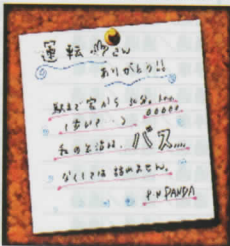 運転手さん
ありがとう!!
駅まで家から
(歩いて‥)
私の生活は、バス....
なくしては語れません。
P.N PANDA